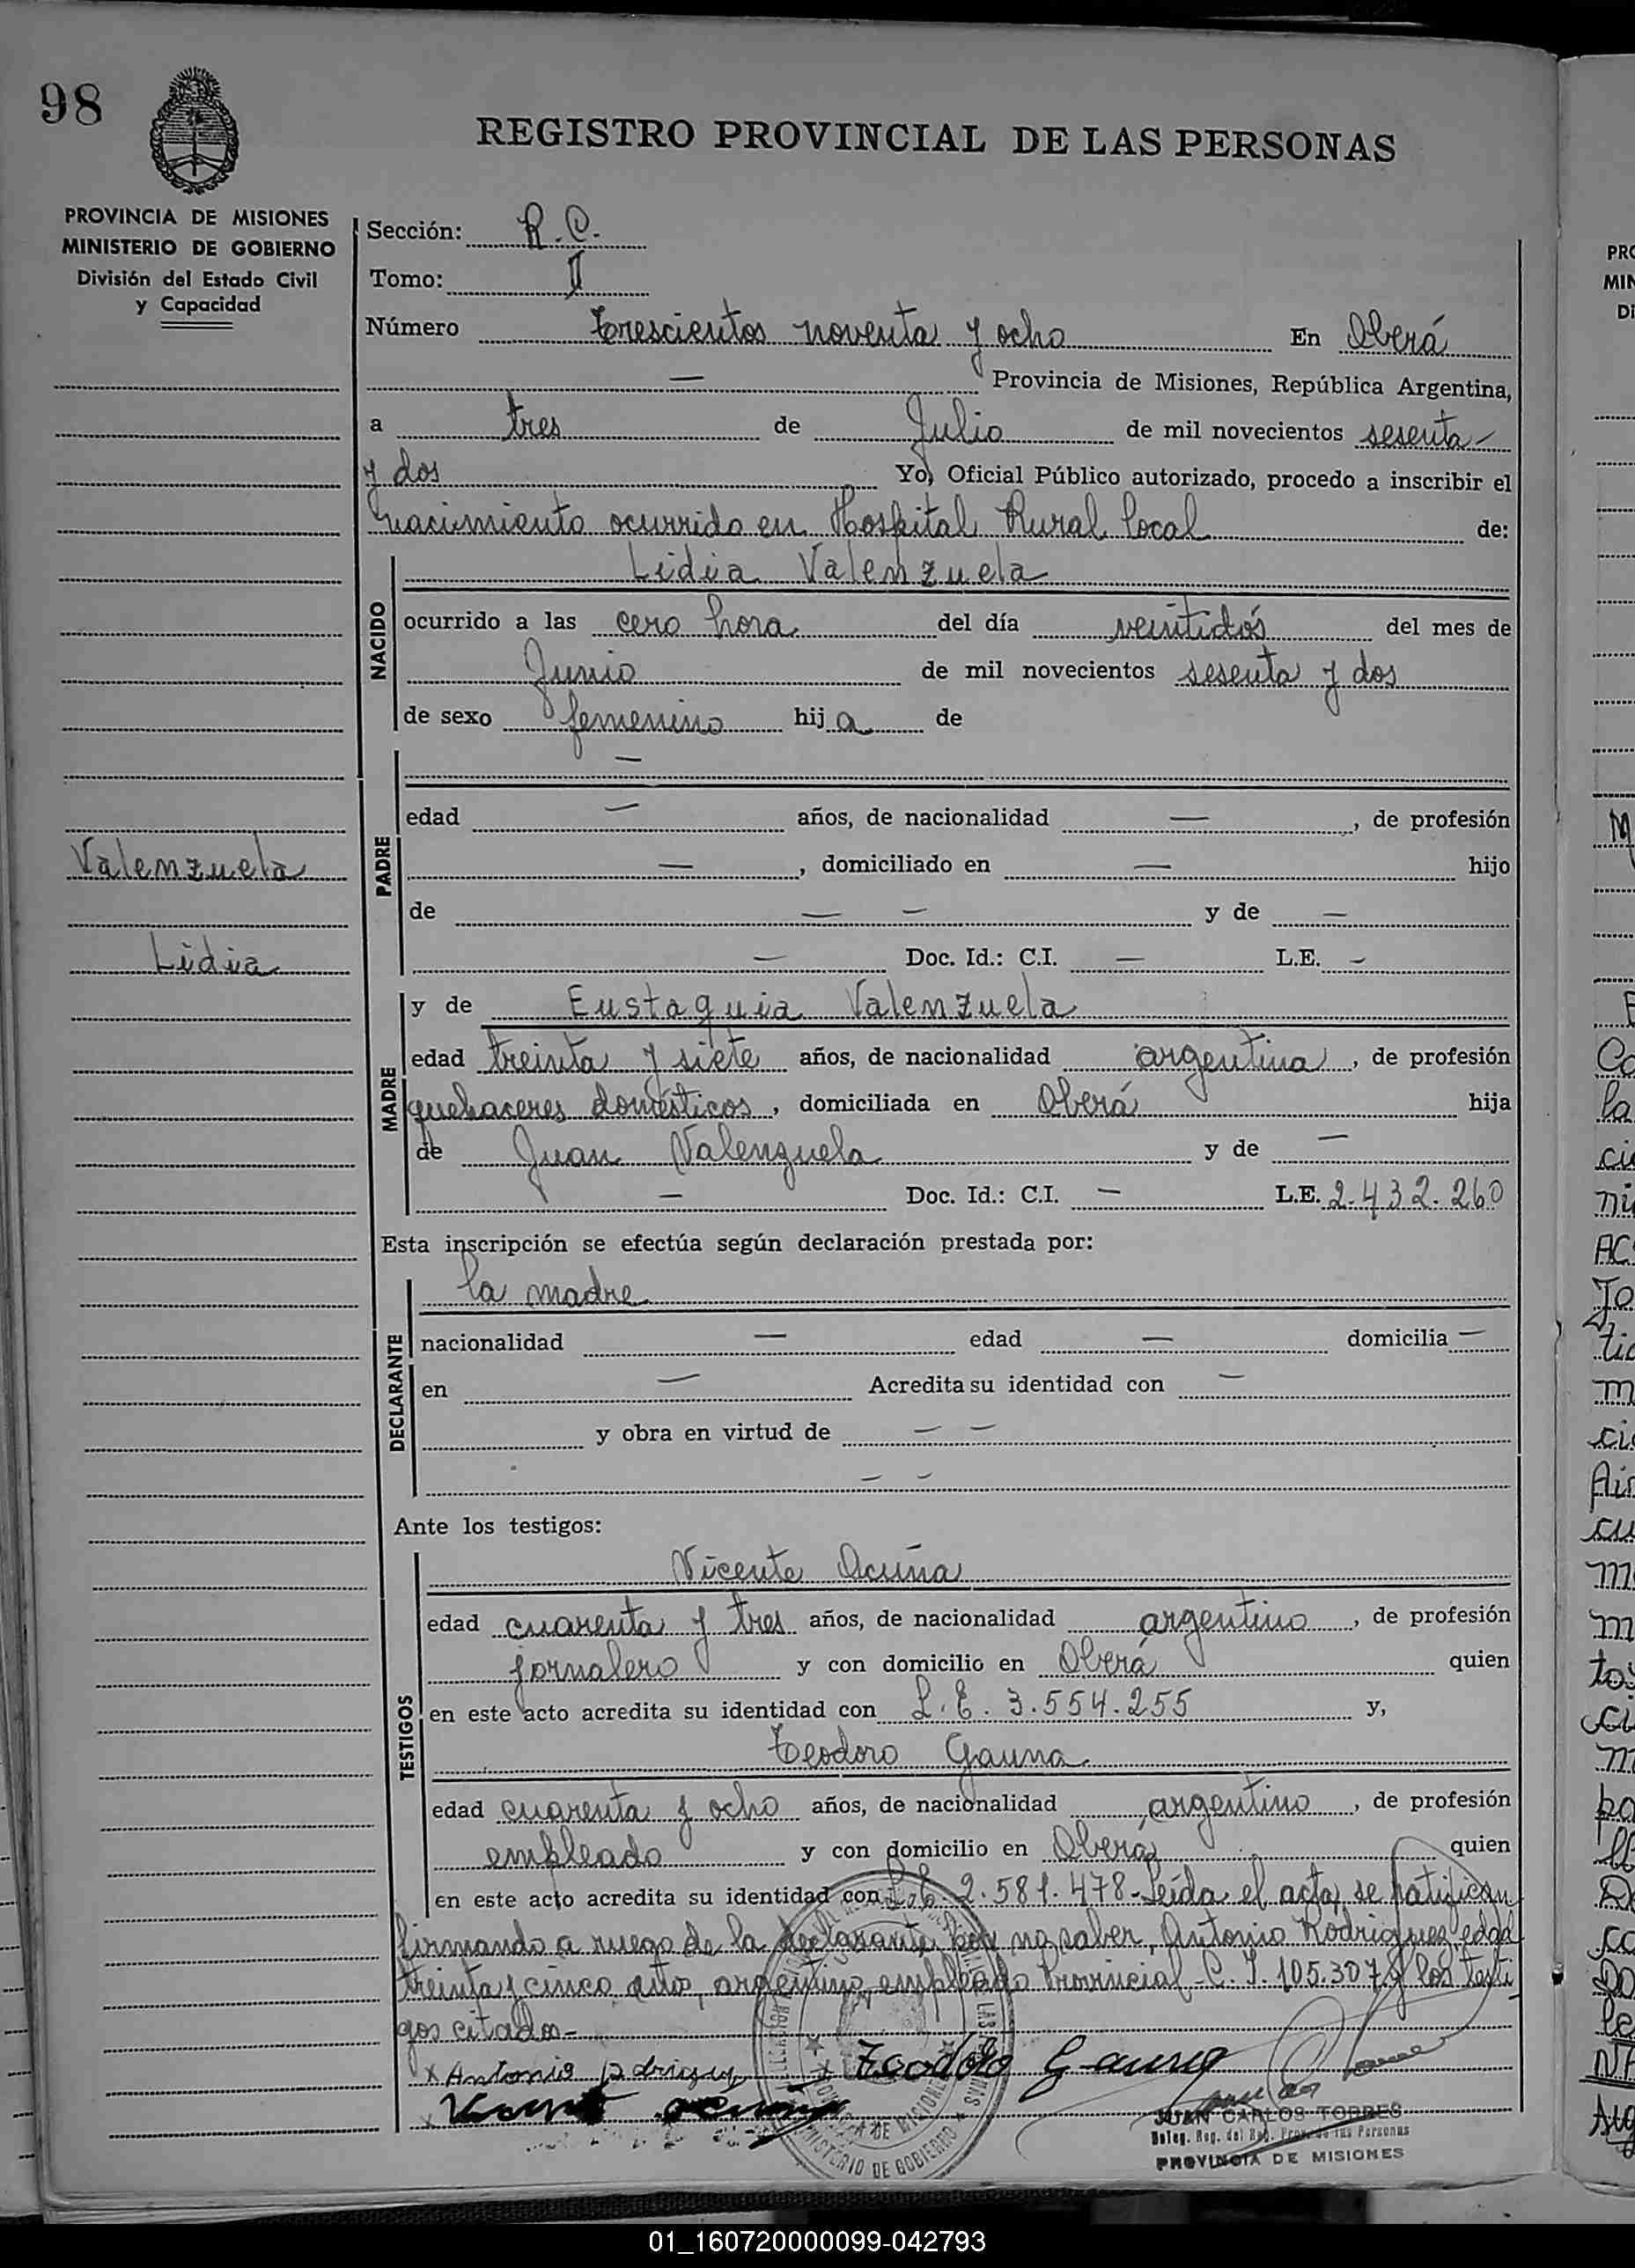 98
REGISTRO PROVINCIAL DE LAS PERSONAS
PROVINCIA DE MISIONES
MINISTERIO DE GOBIERNO
División del Estado Civil
y Capacidad
Sección: R.C.
Tomo: II
Número trescientos noventa y ocho En Oberá
— Provincia de Misiones, República Argentina,
a tres de Julio de mil novecientos sesenta
y dos Yo, Oficial Público autorizado, procedo a inscribir el
nacimiento ocurrido en Hospital Rural local de:
NACIDO
Lidia Valenzuela
ocurrido a las cero hora del día veintidós del mes de
Junio de mil novecientos sesenta y dos
de sexo femenino hija de
PADRE
—
edad — años, de nacionalidad —, de profesión
—, domiciliado en — hijo
de — — y de —
— Doc. Id.: C.I. — L.E. -
Valenzuela
Lidia
MADRE
y de Eustaquia Valenzuela
edad treinta y siete años, de nacionalidad argentina, de profesión
quehaceres domésticos, domiciliada en Oberá hija
de Juan Valenzuela y de —
— Doc. Id.: C.I. — L.E. 2.432.260
Esta inscripción se efectúa según declaración prestada por:
DECLARANTE
la madre
nacionalidad — edad — domicilia —
en — Acredita su identidad con —
y obra en virtud de — —
— —
Ante los testigos:
TESTIGOS
Vicente Acuña
edad cuarenta y tres años, de nacionalidad argentino, de profesión
jornalero y con domicilio en Oberá quien
en este acto acredita su identidad con L.E. 3.554.255 y,
Teodoro Gauna
edad cuarenta y ocho años, de nacionalidad argentino, de profesión
empleado y con domicilio en Oberá quien
en este acto acredita su identidad con L.E. 2.581.478- Leída el acta, se ratifican
firmando a ruego de la declarante por no saber, Antonio Rodriguez edad
treinta y cinco años, argentino, empleado Provincial- C.I. 105.307 y los testi
gos citados-
x Antonio Rodriguez x Teodoro Gauna
x Vicente Acuña
JUAN CARLOS TORRES
Deleg. Reg. del Reg. Prov. de las Personas
PROVINCIA DE MISIONES
MINISTERIO DE GOBIERNO
01_160720000099-042793